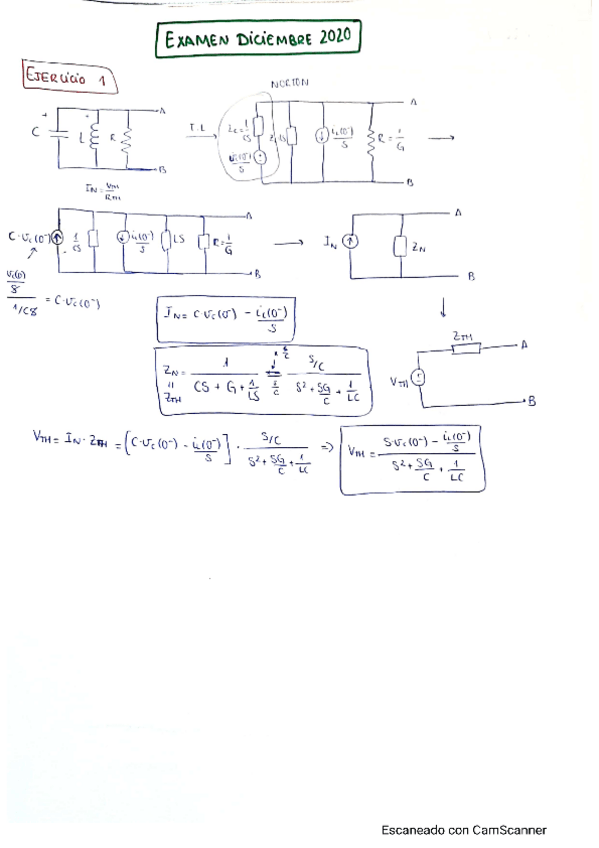 EXAMEN DICIEMBRE 2020
EJERCICIO 1
NORTON
+
C
L
R
A
B
T.L
Ic=1/CS
Vc(0⁻)/S
LS
iL(0⁻)/S
R=1/G
A
B
IN = VTH/RTH
C·Vc(0⁻)
1/CS
iL(0⁻)/S
LS
R=1/G
A
B
IN
ZN
A
B
Vc(0)/8 / 1/C8 = C·Vc(0⁻)
IN = C Vc(0⁻) - iL(0⁻)/S
ZN = 1/(CS + G + 1/LS) = (S/C)/(S² + SG/C + 1/LC)
× S/C
S/C
ZTH
ZTH
A
VTH
B
VTH = IN · ZTH = [C·Vc(0⁻) - iL(0⁻)/S] · (S/C)/(S² + SG/C + 1/LC) => VTH = (S·Vc(0⁻) - iL(0⁻)/S)/(S² + SG/C + 1/LC)
Escaneado con CamScanner